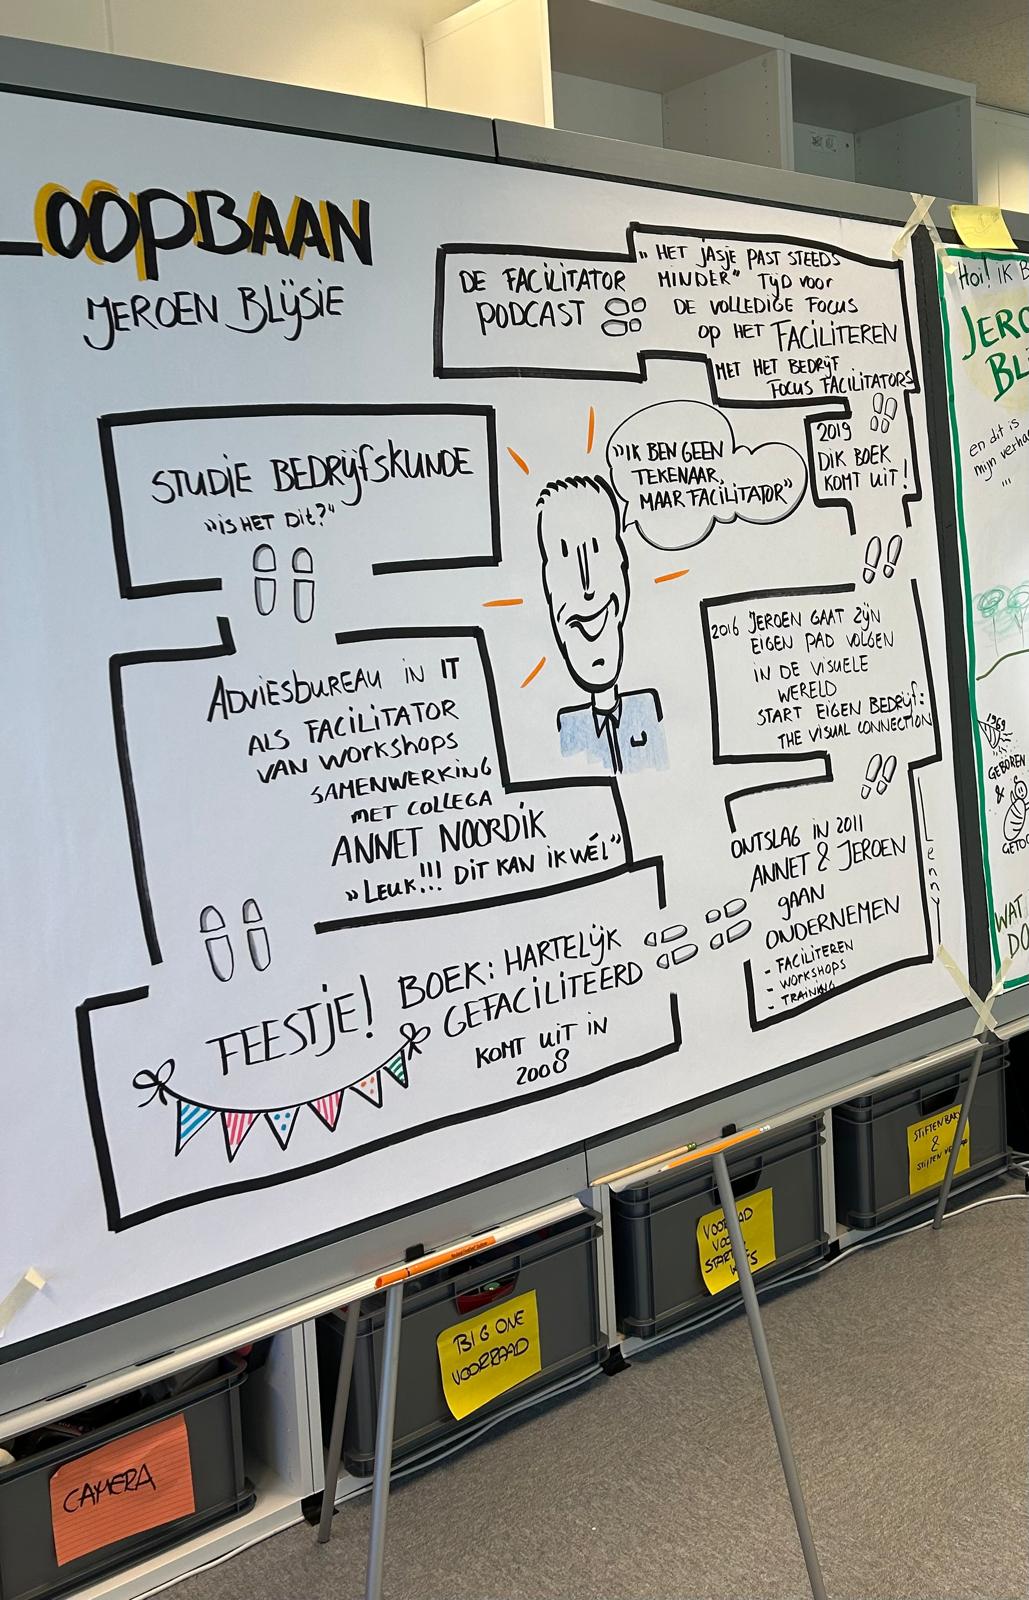 LOOPBAAN
JEROEN BLIJSIE
STUDIE BEDRIJFSKUNDE
"IS HET DIT?"
ADVIESBUREAU IN IT
ALS FACILITATOR
VAN WORKSHOPS
SAMENWERKING
MET COLLEGA
ANNET NOORDIK
"LEUK!!! DIT KAN IK WÉL"
FEESTJE!
BOEK: HARTELIJK
GEFACILITEERD
KOMT UIT IN
2008
ONTSLAG IN 2011
ANNET & JEROEN
GAAN
ONDERNEMEN
- FACILITEREN
- WORKSHOPS
- TRAINING
Lenny
2016 JEROEN GAAT ZIJN
EIGEN PAD VOLGEN
IN DE VISUELE
WERELD
START EIGEN BEDRIJF:
THE VISUAL CONNECTION
2019
DIK BOEK
KOMT UIT!
"HET JASJE PAST STEEDS
MINDER" TIJD VOOR
DE VOLLEDIGE FOCUS
OP HET FACILITEREN
MET HET BEDRIJF
FOCUS FACILITATORS
DE FACILITATOR
PODCAST
"IK BEN GEEN
TEKENAAR,
MAAR FACILITATOR"
Hoi! IK B
JERO
BL
en dit is
mijn verha
...
1969
GEBOREN
&
GETO
WAT
DO
CAMERA
BIG ONE
VOORRAAD
STIFTENBAK
&
STIFTEN